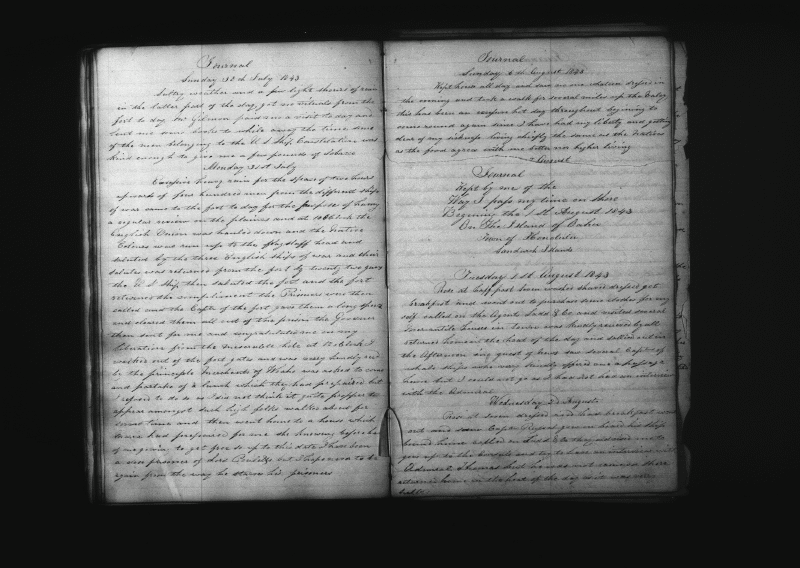 Journal
Sunday 30th July 1843
Sultry weather and a few light showers of rain
in the latter part of the day, got no victuals from the
fort to day Mr Gilman paid me a visit to day and
lend me some books to while away the time some
of the men belonging to the U S Ship Constellation was
kind enough to give me a few pounds of tobacco
Monday 31st July
heavy rain for the space of two hours
upwards of four hundred men from the different ships
of war came to the fort to day for the purpose of having
a regular review on the plains and at 10 oClock the
English Union was hauled down and the Native
Colours was run up to the flag staff head and
saluted by the three English ships of war and their
salute was returned from the fort by twenty two guns
the U S Ship then saluted the fort and the fort
returned the compliment the Prisoners were then
called and the Captn of the fort gave them a long speech
and cleared them all out of the prison the Governor
then sent for me and congratulated me on my
liberation from the miserable hole at 12 oClock I
walked out of the fort gates and was very kindly recd
by the principle Merchants of Woahu was asked to come
and partake of a lunch which they had prepaired but
I refused to do so as I did not think it quite propper to
appear amongst such high folks walked about for
some time and then went home to a house which
had prepaired for me
to get free so up to this date I have been
a prisoner of but I hope never to be
again from the way he starves his prisoners
Journal
Sunday 6th August 1843
Kept house all day and saw no one whatever dressed in
the evening and took a walk for several miles up the Valley
this has been an day throughout begining to
come round again since I have had my liberty and getting
clear of my sickness living chiefly the same as the Natives
as the food agrees with me better nor higher living
Journal
Journal
Kept by one of the
Way I pass my time on shore
Begining the 1st August 1843
On The Island of Oahu
Town of Honolulu
Sandwich Islands
Tuesday 1st August 1843
Rose at half past Seven washed shaved dressed got
breakfast and went out to purchase some clothes for my
self called on the Agent Ladd & Co and visited several
Mercantile houses in town was kindly received by all
returned home in the heat of the day and
the afternoon in quest of news saw several Captns of
whale ships who very kindly offered me a passage
home but I could not go as I had not had an interview
with the Admiral
Wednesday 2d August
Rose at Seven dressed and had breakfast went
out and saw Captn
bound home called on Ladd & Co they advised me to
gone up to the and try to have an interview with
Admiral Thomas but was not received there
returned home in the heat of the day as it was very